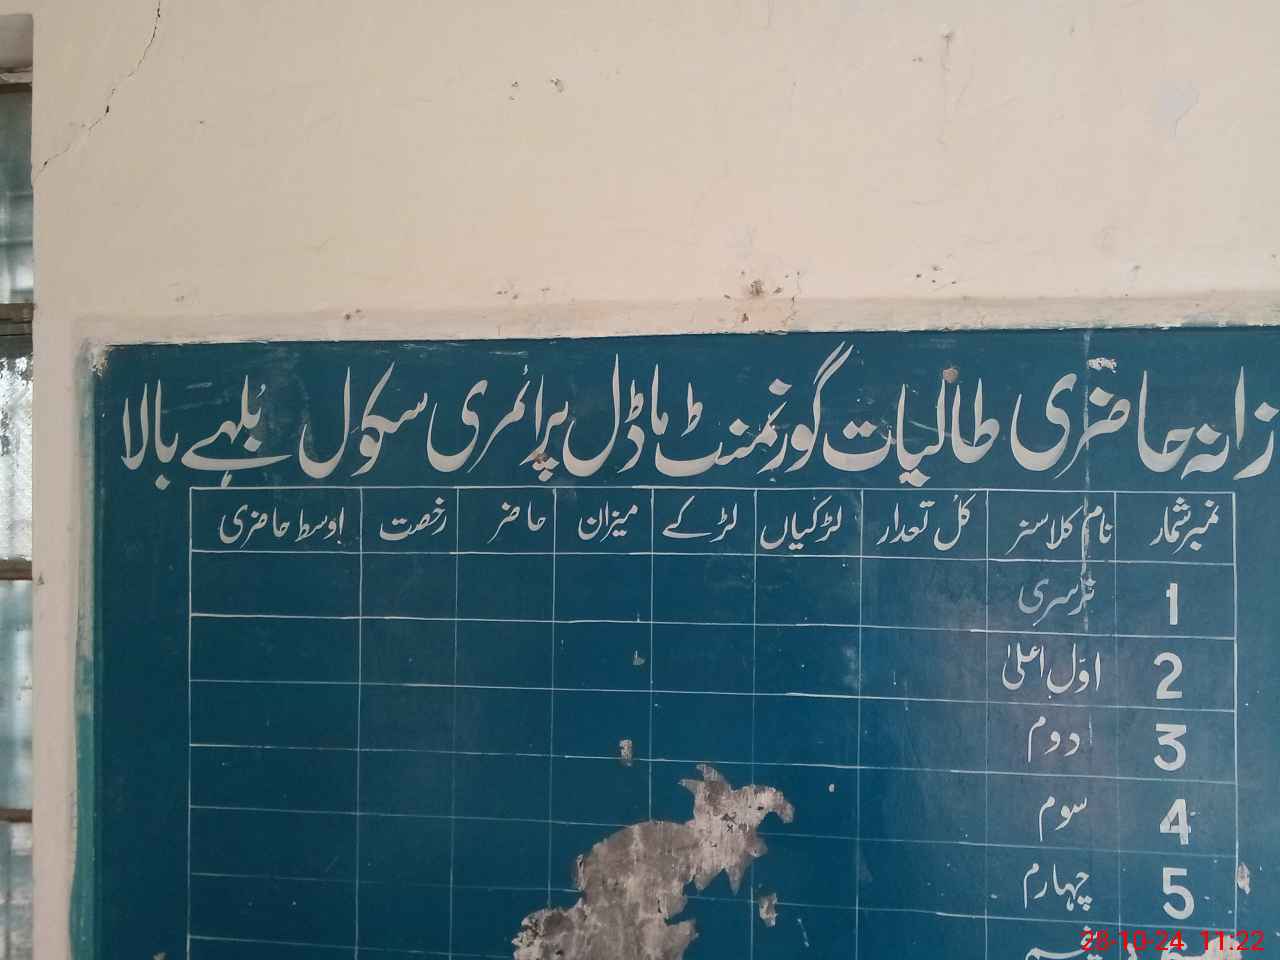 زانہ حاضری طالبات گورنمنٹ ماڈل پرائمری سکول بُلہے بالا
نمبر شمار نام کلاسز کل تعداد لڑکیاں لڑکے میزان حاضر رخصت اوسط حاضری
1 نرسری
2 اوّل اعلیٰ
3 دوم
4 سوم
5 چہارم
28-10-24 11:22